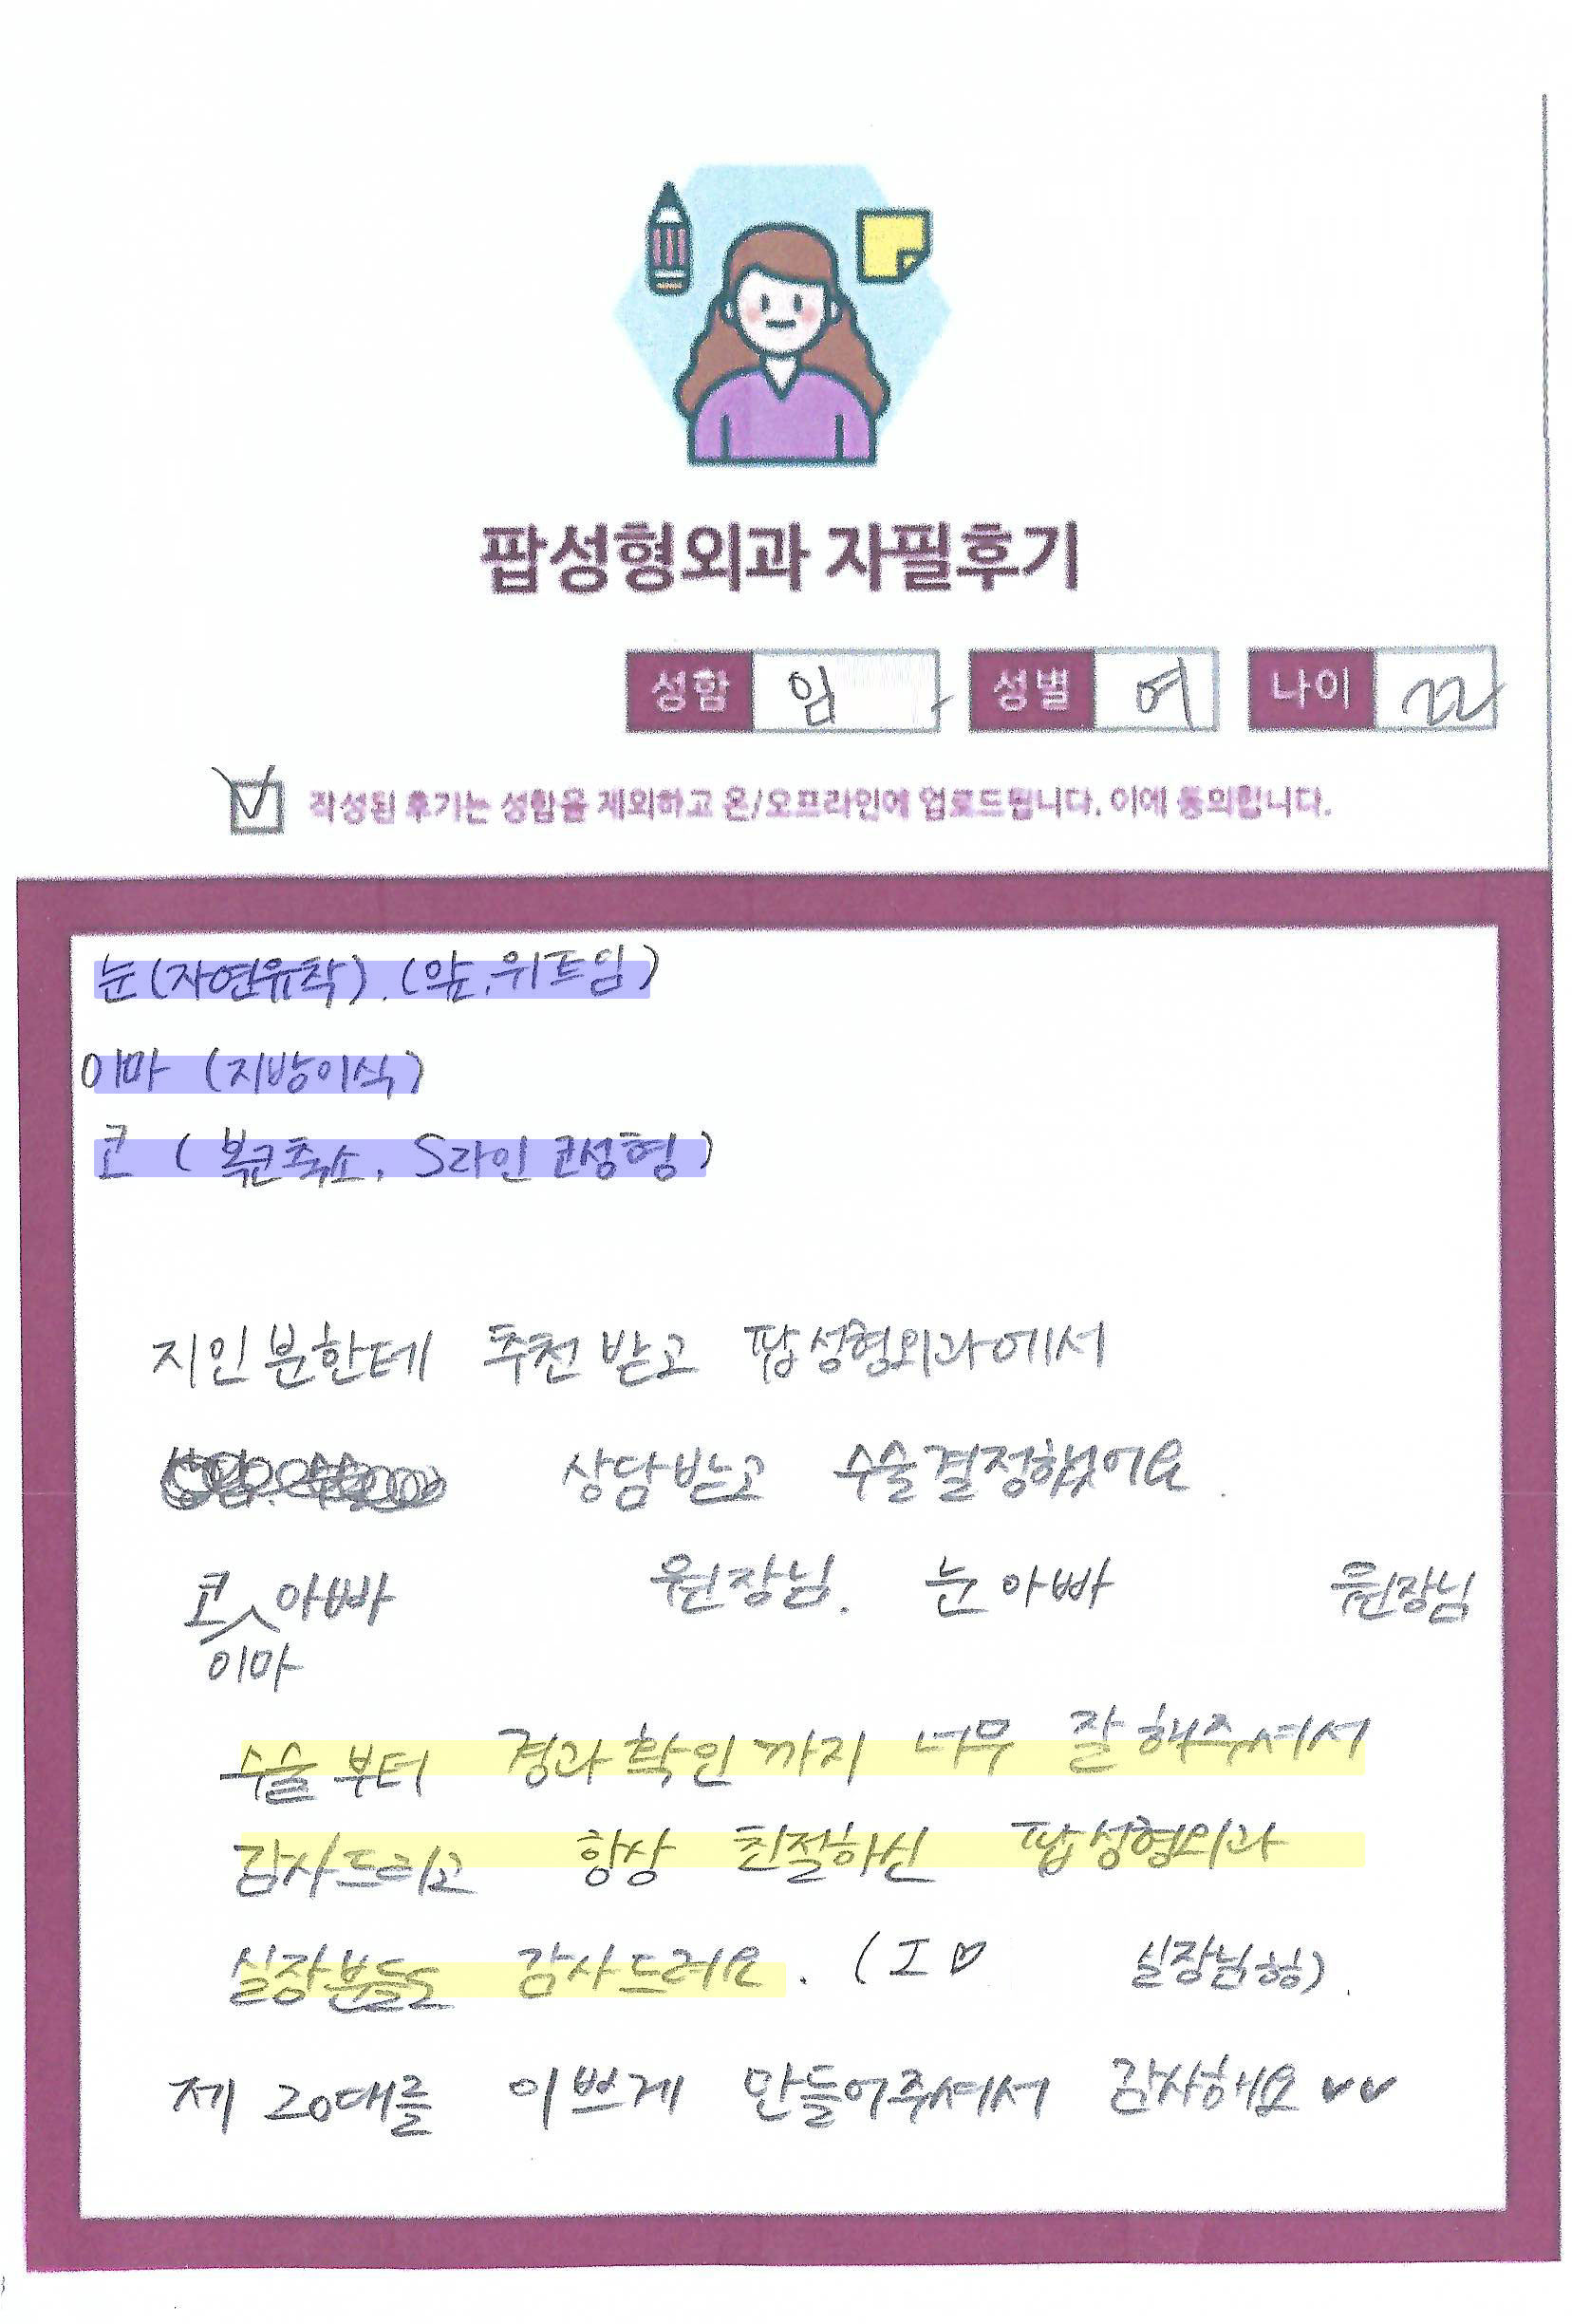 팝성형외과 자필후기
성함 임 성별 여 나이 22
작성된 후기는 성함을 제외하고 온/오프라인에 업로드됩니다. 이에 동의합니다.
눈(자연유착). (앞, 위트임)
이마 (지방이식)
코 ( 복코축소, S라인 코성형)
지인분한테 추천 받고 팝성형외과에서
상담받고 수술결정했어요.
코 아빠 원장님. 눈 아빠 원장님
이마
수술부터 경과 확인까지 너무 잘해주셔서
감사드리고 항상 친절하신 팝성형외과
실장분들도 감사드려요. (I♡ 실장님힝).
제 20대를 이쁘게 만들어주셔서 감사해요♥♥